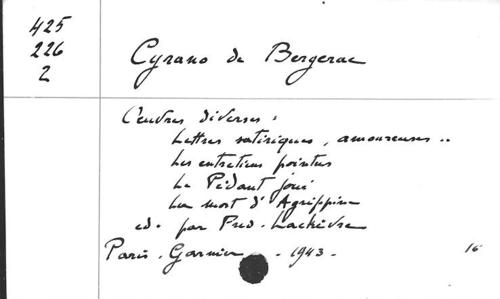 425
226
2
Cyrano de Bergerac
Œuvres diverses :
Lettres satiriques, amoureuses ..
Les entretiens pointus
Le Pédant joué
La mort d'Agrippine
ed. par Fred. Lachèvre
Paris. Garnier . 1943.
16